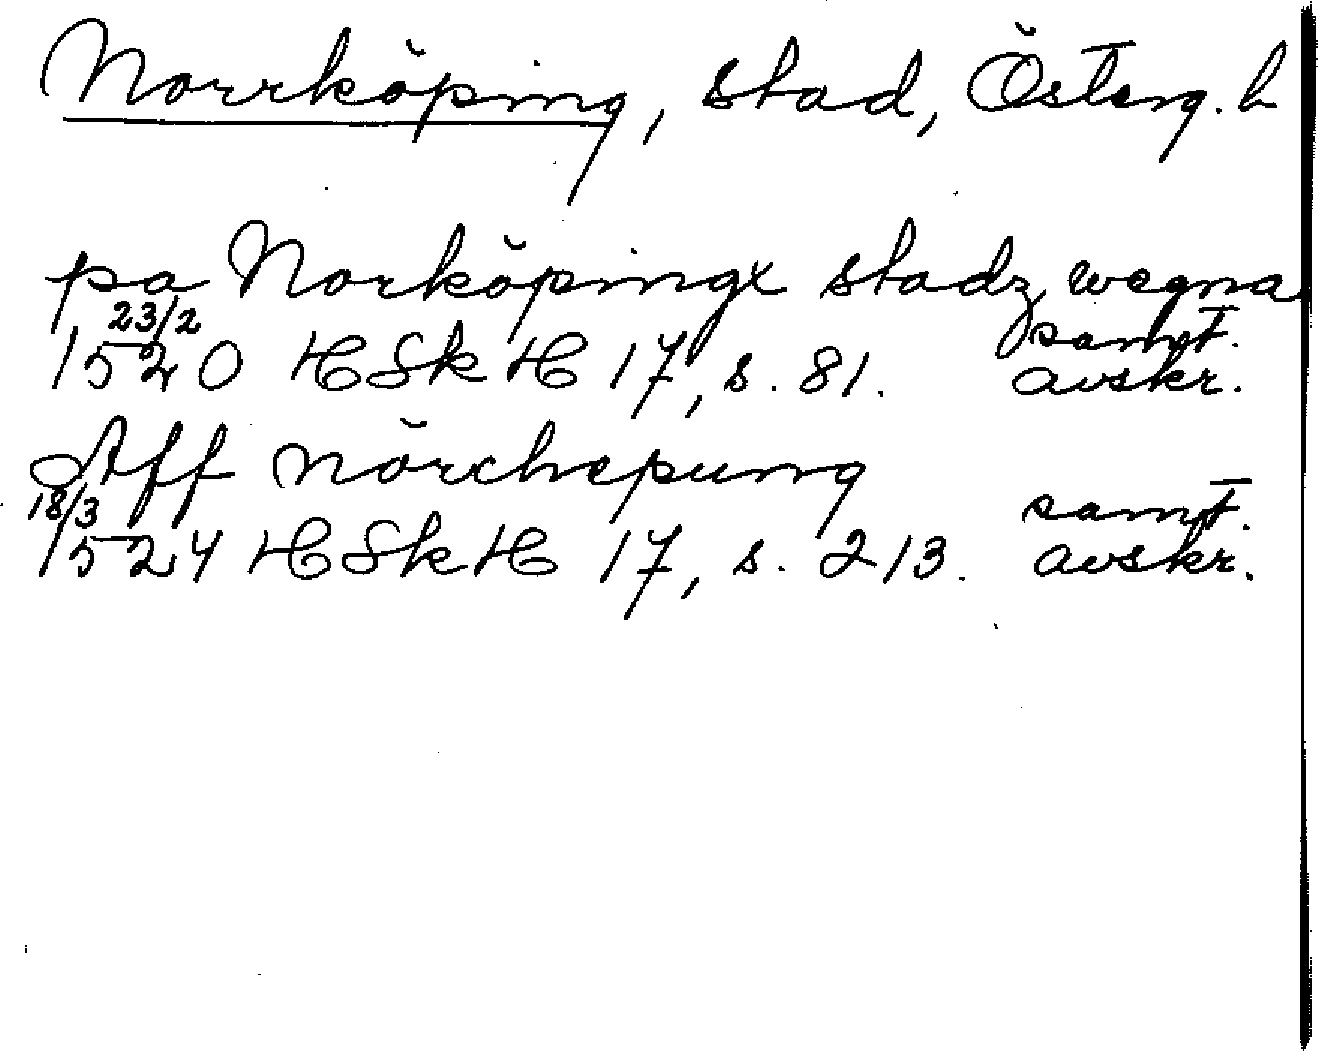 Norrköping, stad, Österg. l
pa Norköpingx stadz wegna
23/2 samt.
1520 HSkH 17, s. 81. avskr.
Aff nörchepung
18/3 samt.
1524 HSkH 17, s. 213. avskr.